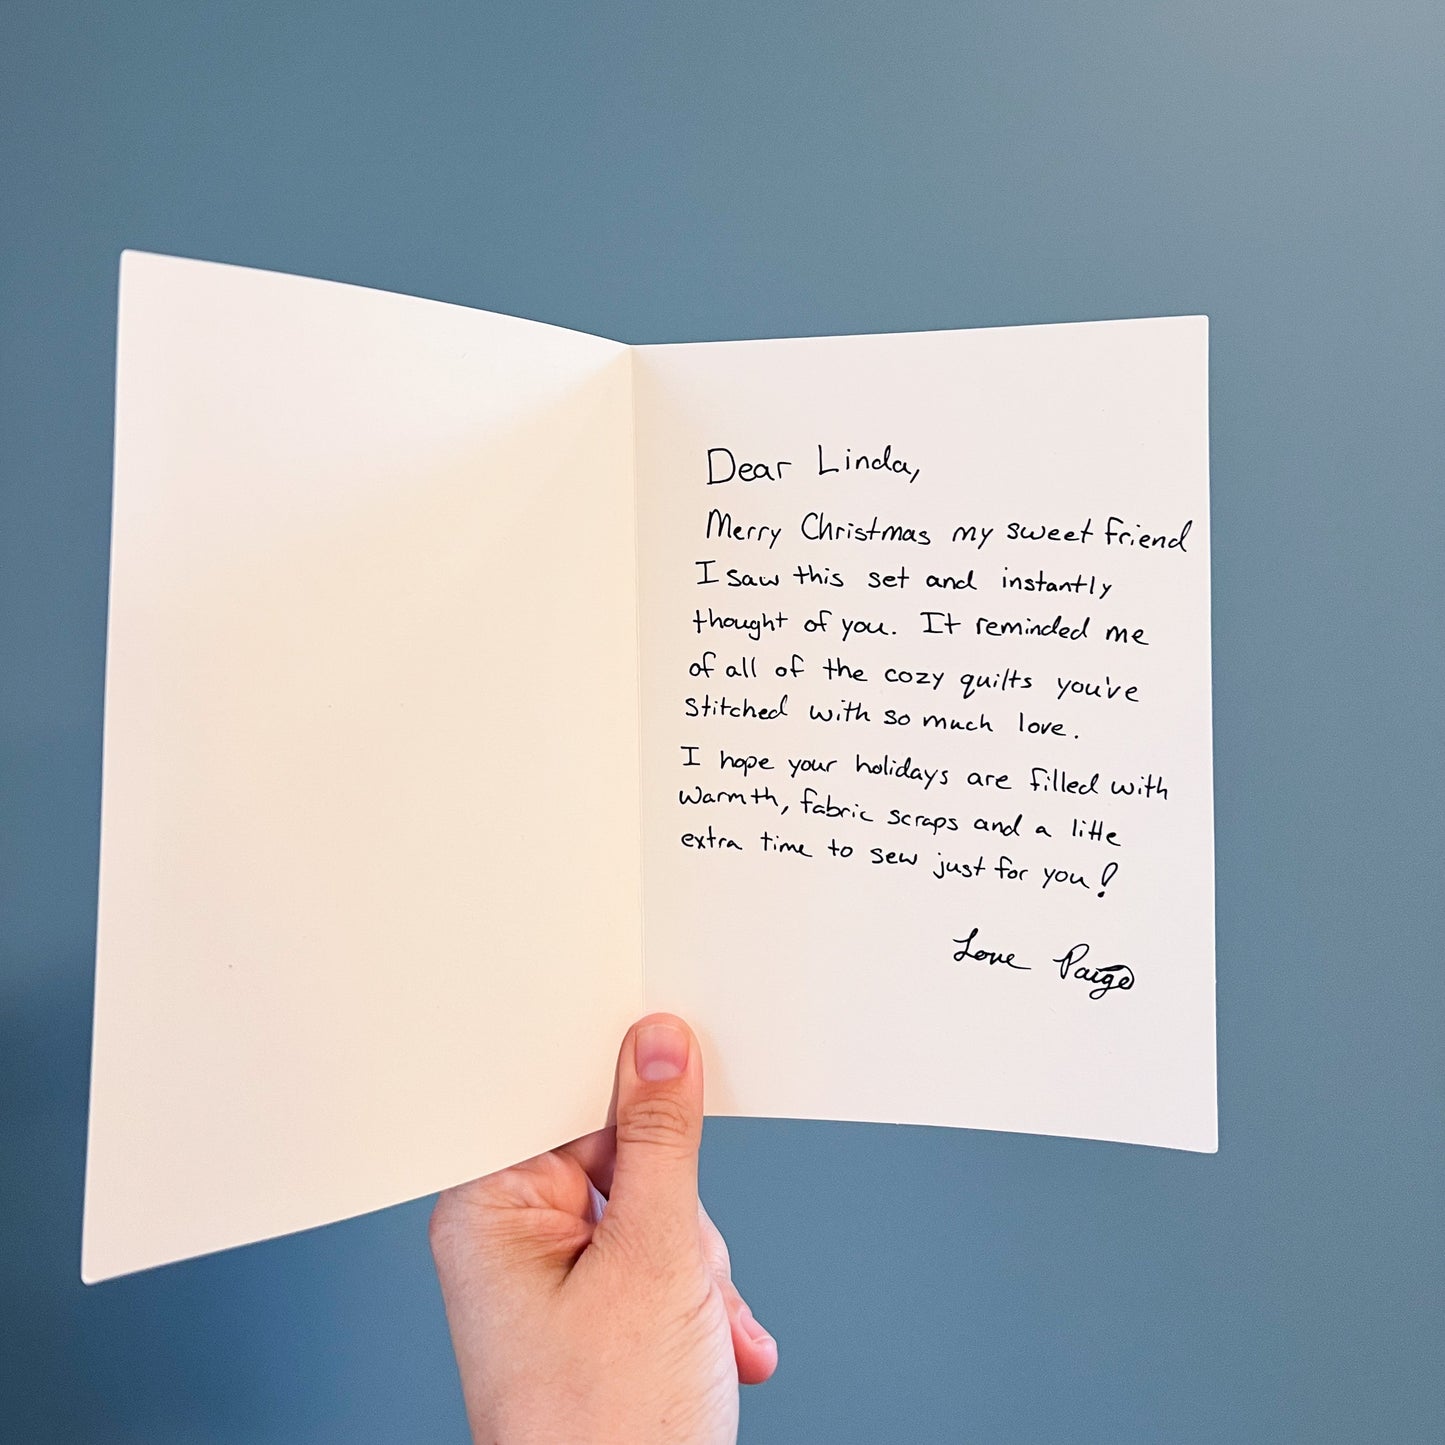 Dear Linda,
Merry Christmas my sweet friend
I saw this set and instantly
thought of you. It reminded me
of all of the cozy quilts you've
stitched with so much love.
I hope your holidays are filled with
warmth, fabric scraps and a little
extra time to sew just for you!
Love Paige